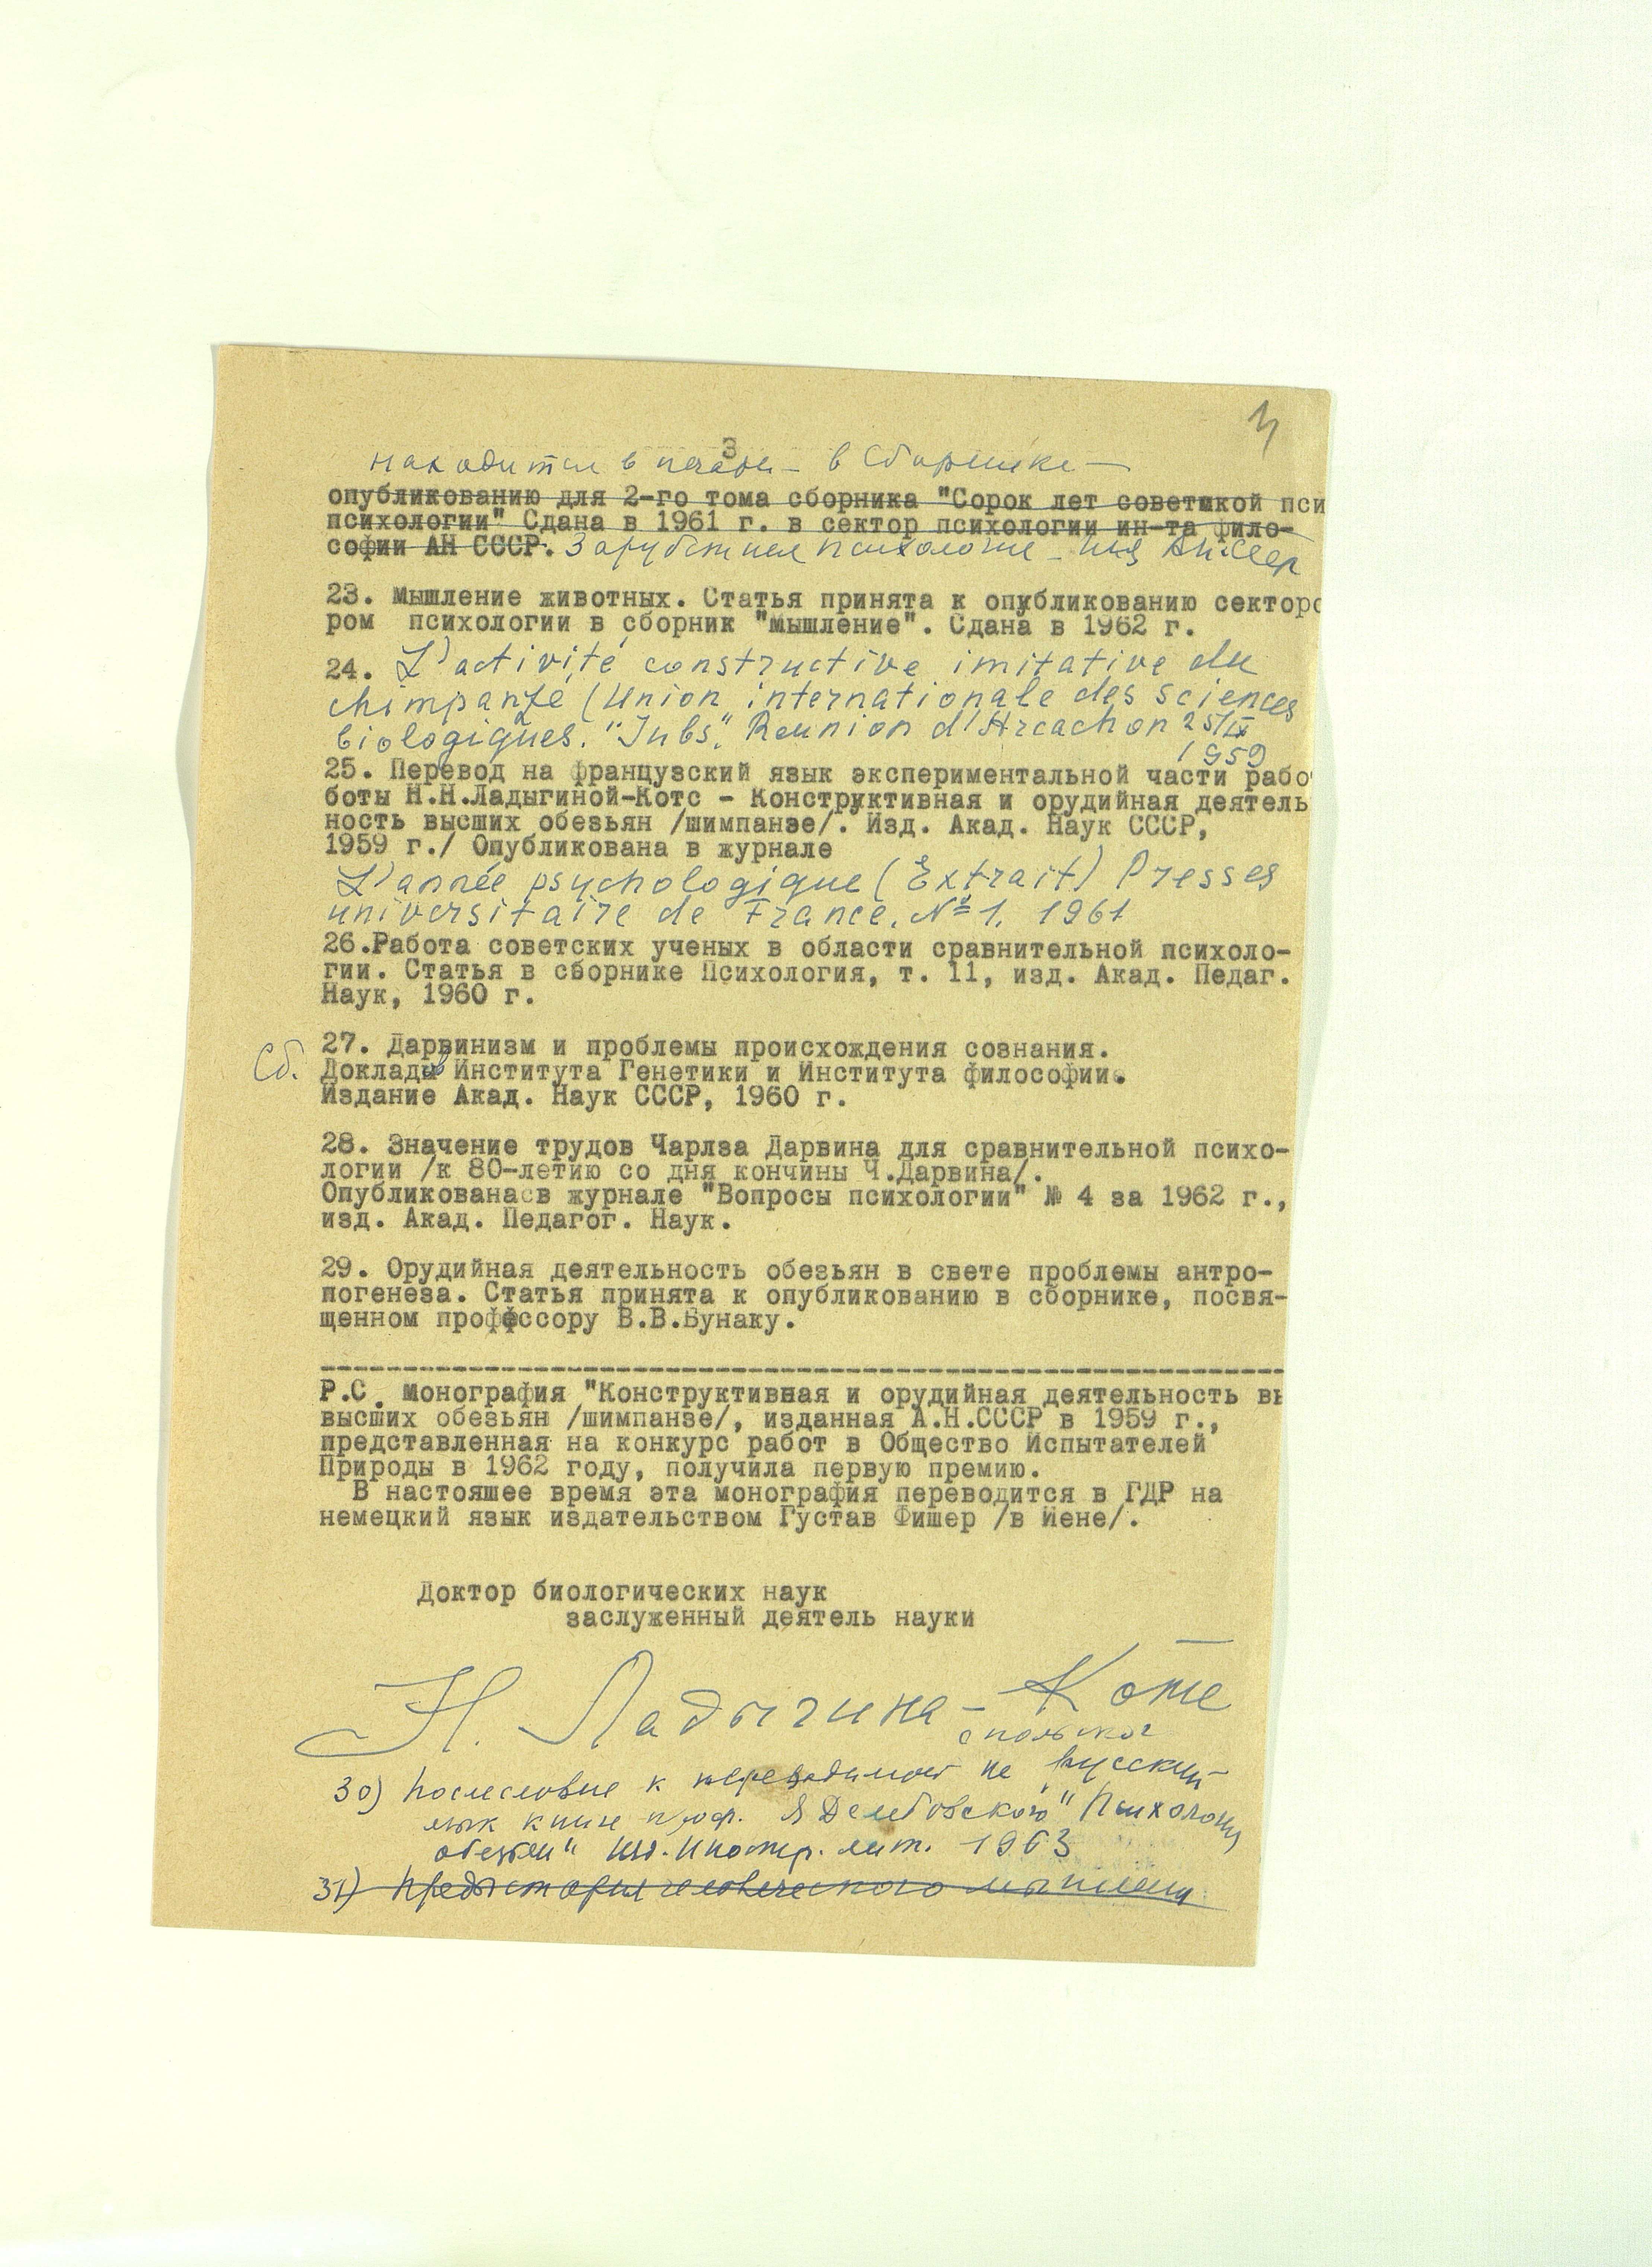 3
3
находится в печати – в Сборнике –
опубликованию для 2-го тома сборника "Сорок лет советмкой пси
психологии" Сдана в 1961 г. в сектор психологии ин-та фило-
софии АН СССР. Зарубежная психология – АН СССР
23. Мышление животных. Статья принята к опубликованию секторо
ром психологии в сборник "мышление". Сдана в 1962 г.
24. L'activité constructive imitative du
chimpanzé (Union internationale des sciences
biologiques. "Jubs". Reunion d'Arcachon 25/IX
1959
25. Перевод на французский язык экспериментальной части рабо
боты Н.Н.Ладыгиной-Котс - Конструктивная и орудийная деятель
ность высших обезьян /шимпанзе/. Изд. Акад. Наук СССР,
1959 г./ Опубликована в журнале
L'année psychologique (Extrait) Presses
universitaire de France. № 1. 1961
26.Работа советских ученых в области сравнительной психоло-
гии. Статья в сборнике Психология, т. 11, изд. Акад. Педаг.
Наук, 1960 г.
27. Дарвинизм и проблемы происхождения сознания.
Сб. Докладов Института Генетики и Института философии.
Издание Акад. Наук СССР, 1960 г.
28. Значение трудов Чарлза Дарвина для сравнительной психо-
логии /к 80-летию со дня кончины Ч.Дарвина/.
Опубликованасв журнале "Вопросы психологии" № 4 за 1962 г.,
изд. Акад. Педагог. Наук.
29. Орудийная деятельность обезьян в свете проблемы антро-
погенеза. Статья принята к опубликованию в сборнике, посвя-
щенном профессору В.В.Бунаку.
Р.С. Монография "Конструктивная и орудийная деятельность вы
высших обезьян /шимпанзе/, изданная А.Н.СССР в 1959 г.,
представленная на конкурс работ в Общество Испытателей
Природы в 1962 году, получила первую премию.
В настояшее время эта монография переводится в ГДР на
немецкий язык издательством Густав Фишер /в Йене/.
Доктор биологических наук
заслуженный деятель науки
Н. Ладыгина-Котс
с польского
30) Послесловие к переводимой на русский
язык книге проф. Я Дембовского "Психология
обезьян" Изд. Иностр. лит. 1963
31) Предыстория человеческого мышления